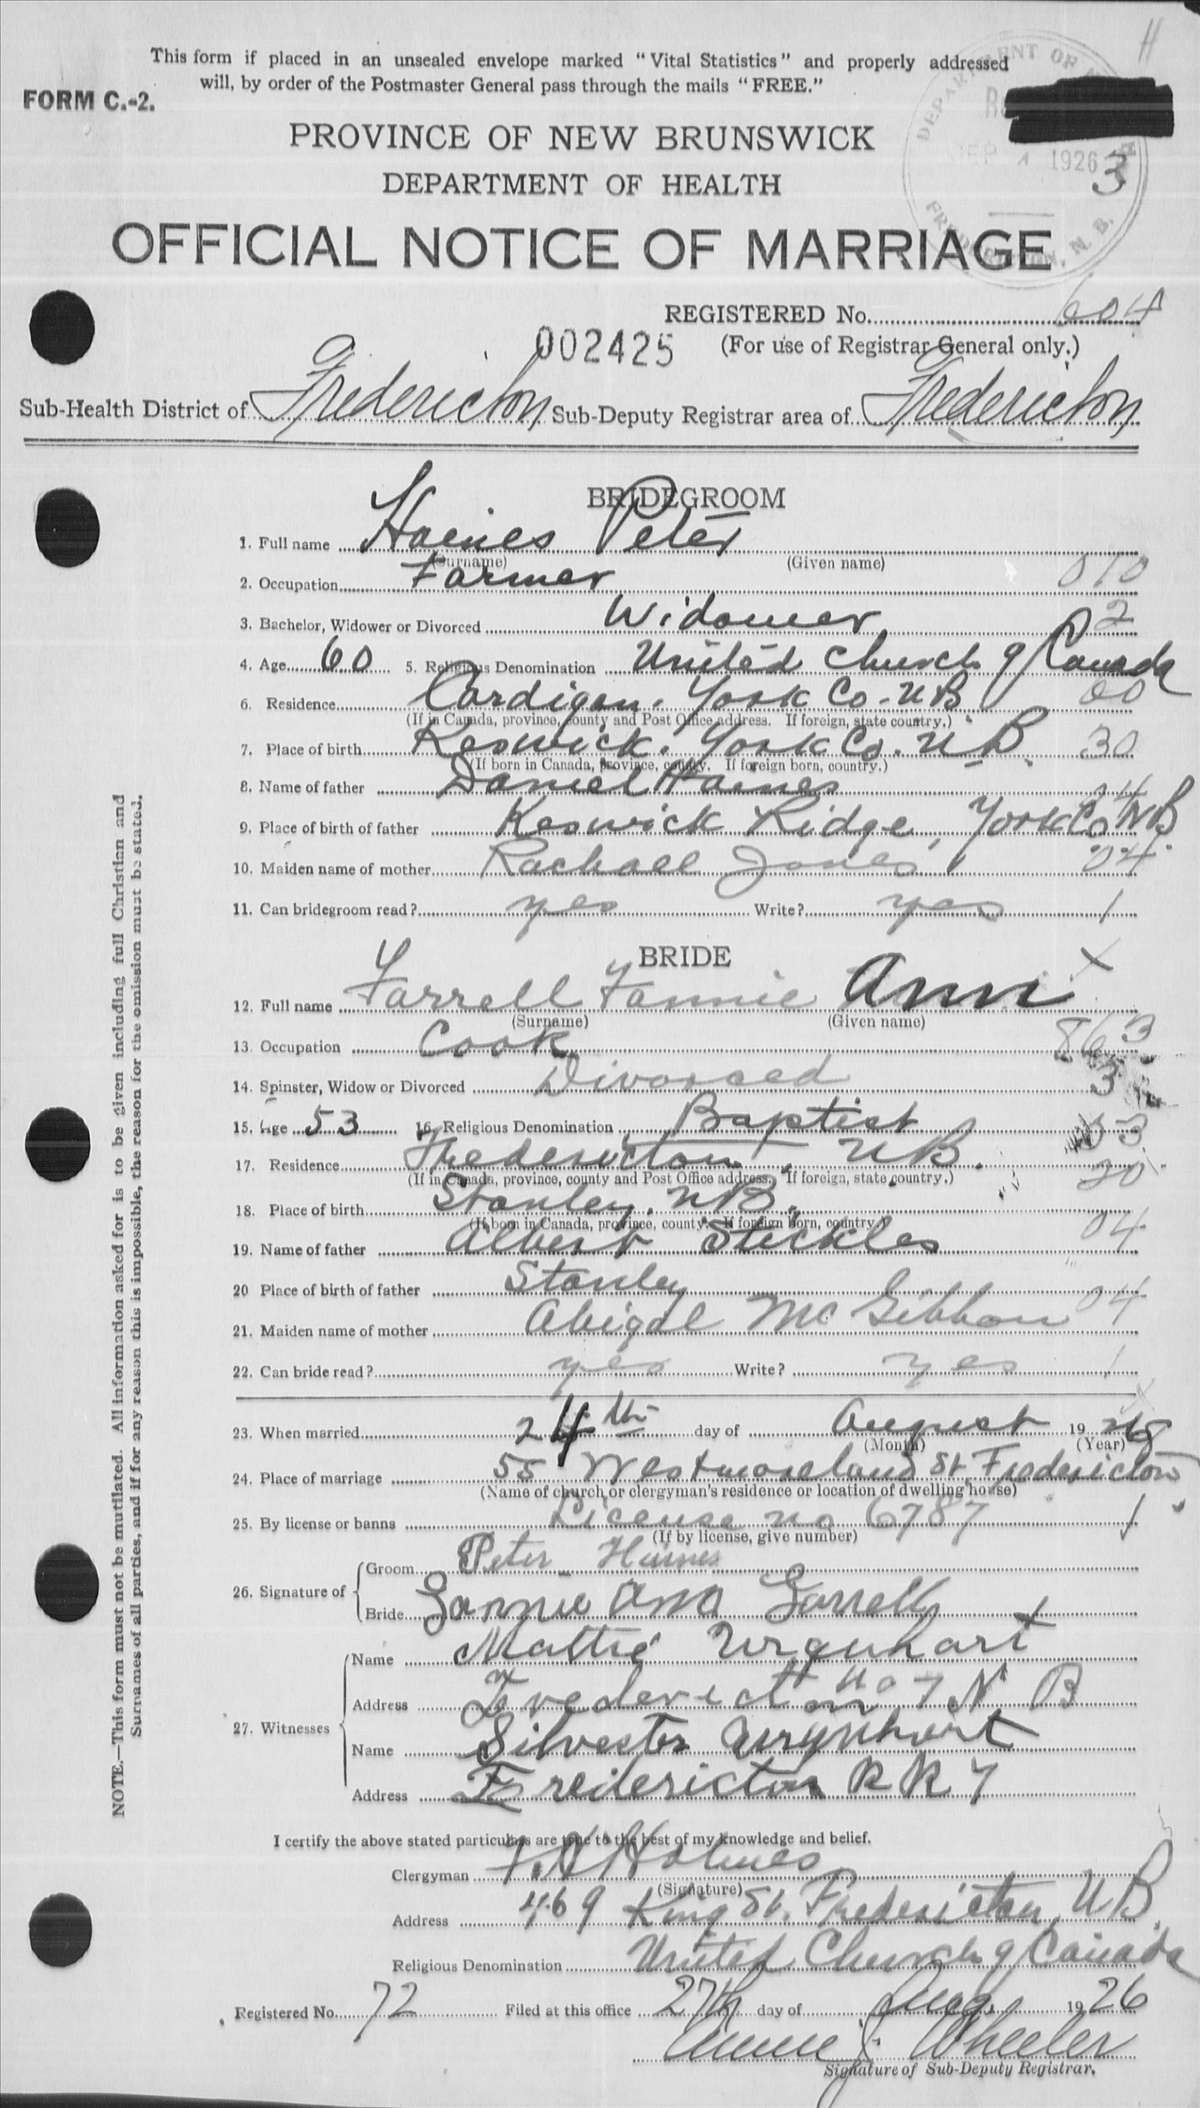 This form if placed in an unsealed envelope marked "Vital Statistics" and properly addressed
will, by order of the Postmaster General pass through the mails "FREE."
FORM C.-2.
PROVINCE OF NEW BRUNSWICK
DEPARTMENT OF HEALTH
1926
3
OFFICIAL NOTICE OF MARRIAGE
REGISTERED No. 604
002425 (For use of Registrar General only.)
Sub-Health District of Fredericton Sub-Deputy Registrar area of Fredericton
BRIDEGROOM
1. Full name Haines Peter
(Surname) (Given name)
2. Occupation Farmer 010
3. Bachelor, Widower or Divorced Widower 2
4. Age 60 5. Religious Denomination United Church of Canada
6. Residence Cardigan. York Co. N B 00
(If in Canada, province, county and Post Office address. If foreign, state country.)
7. Place of birth Keswick. York Co. N B 30
(If born in Canada, province, county. If foreign born, country.)
8. Name of father Daniel Haines
9. Place of birth of father Keswick Ridge, York Co NB
10. Maiden name of mother Rachael Jones 04
11. Can bridegroom read? yes Write? yes 1
BRIDE
12. Full name Farrell Fannie Ann
(Surname) (Given name)
13. Occupation Cook 863
14. Spinster, Widow or Divorced Divorced 3
15. Age 53 16. Religious Denomination Baptist 03
17. Residence Fredericton, N B. 20
(If in Canada, province, county and Post Office address. If foreign, state country.)
18. Place of birth Stanley. N B.
(If born in Canada, province, county. If foreign born, country.)
19. Name of father Albert Steckles 04
20 Place of birth of father Stanley
21. Maiden name of mother Abigal McGibbon 04
22. Can bride read? yes Write? yes 1
23. When married 24th day of August 1926
(Month) (Year)
24. Place of marriage 55 Westmoreland St Fredericton
(Name of church or clergyman's residence or location of dwelling house)
25. By license or banns License no 6787 1
(If by license, give number)
26. Signature of Groom Peter Haines
Bride Fannie Ann Farrell
27. Witnesses Name Mattie Urquhart
Address Fredericton no 7 N B
Name Silvester Urquhart
Address Fredericton R R 7
I certify the above stated particulars are true to the best of my knowledge and belief.
Clergyman F. A Holmes
(Signature)
Address 469 King St. Fredericton, N B.
Religious Denomination United Church of Canada
Registered No. 72 Filed at this office 27th day of Aug. 1926
Annie J. Wheeler
Signature of Sub-Deputy Registrar.
NOTE.—This form must not be mutilated. All information asked for is to be given including full Christian and
Surnames of all parties, and if for any reason this is impossible, the reason for the omission must be stated.